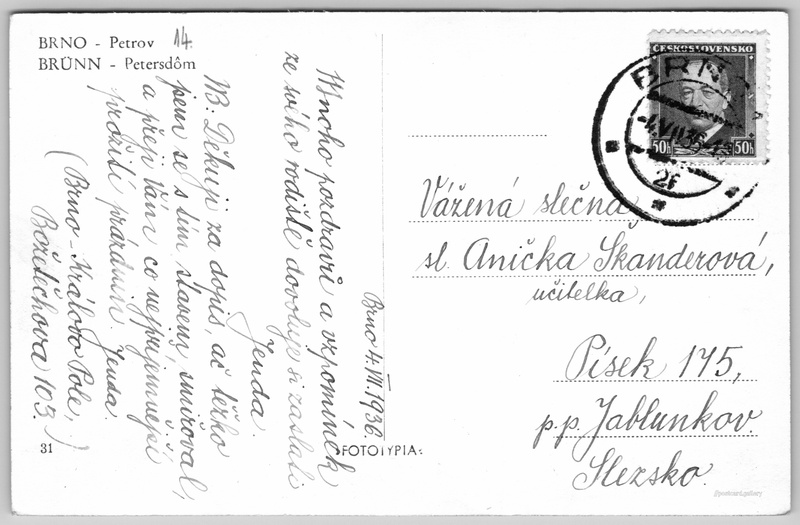 BRNO - Petrov 14.
BRÜNN - Petersdôm
Brno 4.VII.1936.
Mnoho pozdravů a vzpomínek
ze svého rodiště dovoluje si zaslati
Jenda.
NB. Děkuji za dopis, ač těžko
jsem se s tím stavem smiřoval,
a přeji Vám co nejpříjemnější
prožití prázdnin. Jenda
(Brno - Králova Pole,
Božetěchova 103.)
31
FOTOTYPIA
ČESKOSLOVENSKO
50h 50h
BRNO
-4.VII.36
2f
Vážená slečna
sl. Anička Škanderová,
učitelka,
Písek 175,
p.p. Jablunkov.
Slezsko.